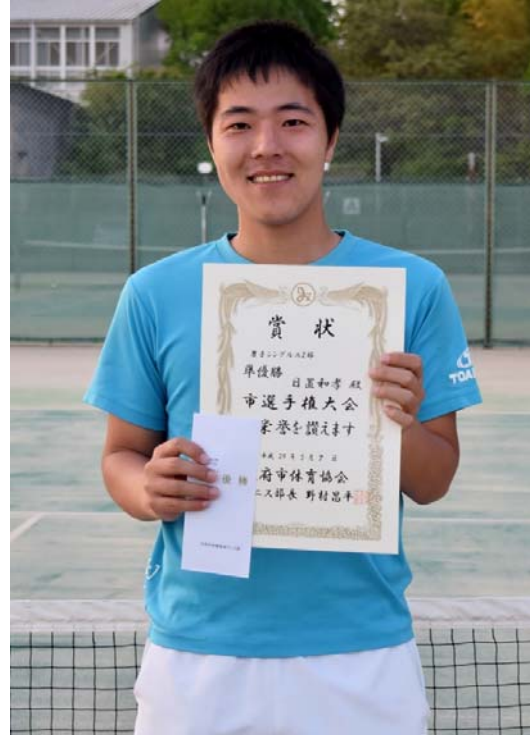 賞状
男子シングルス2部
準優勝
日置和孝 殿
市選手権大会
栄誉を讃えます
平成29年5月7日
府市体育協会
ニス部長 野村昌平
優勝
TOA